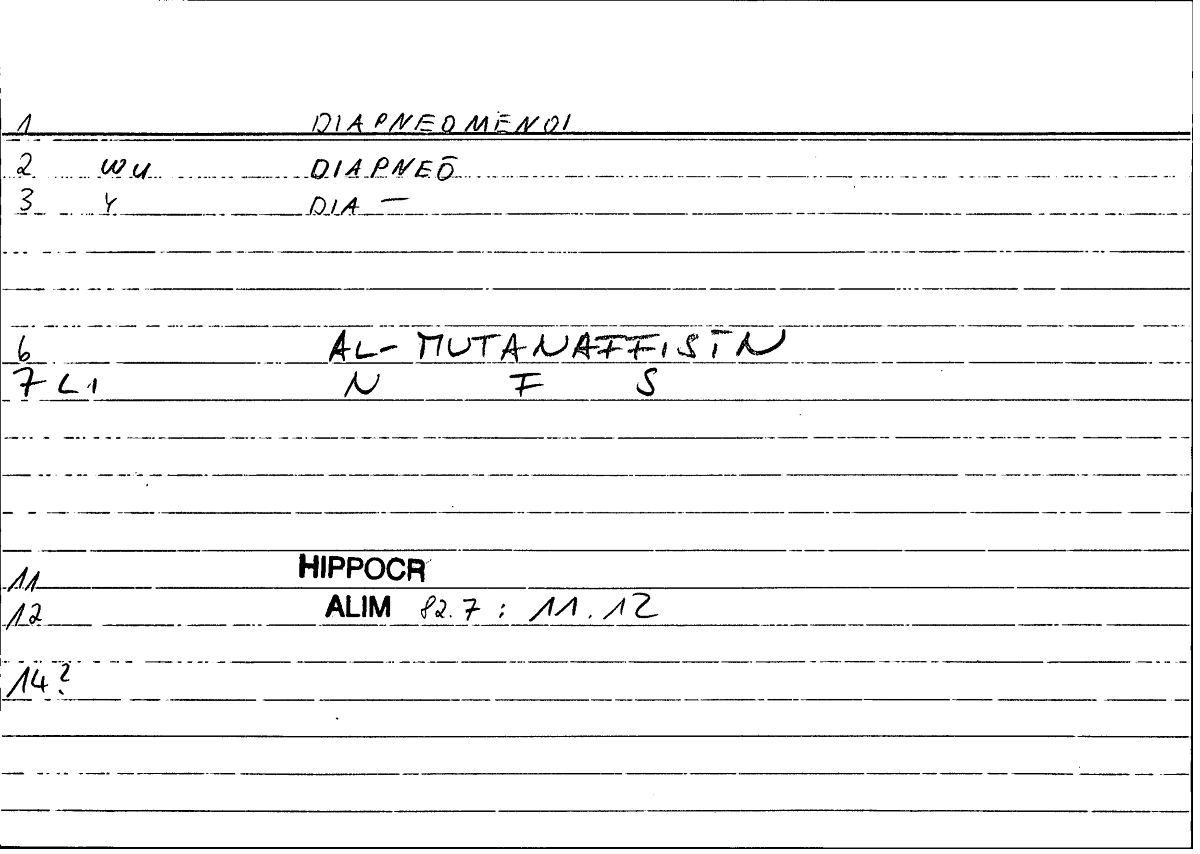 1 DIAPNEOMENOI
2 WU DIAPNEŌ
3 Y DIA —
6 AL-MUTANAFFISĪN
7 L1 N F S
11 HIPPOCR
12 ALIM 82.7 : 11.12
14?